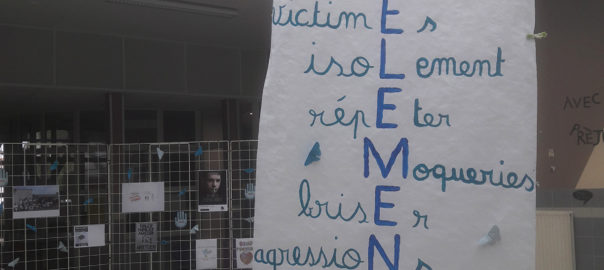 victimEs
isoLement
répEter
Moqueries
brisEr
agressioNs
AVEC